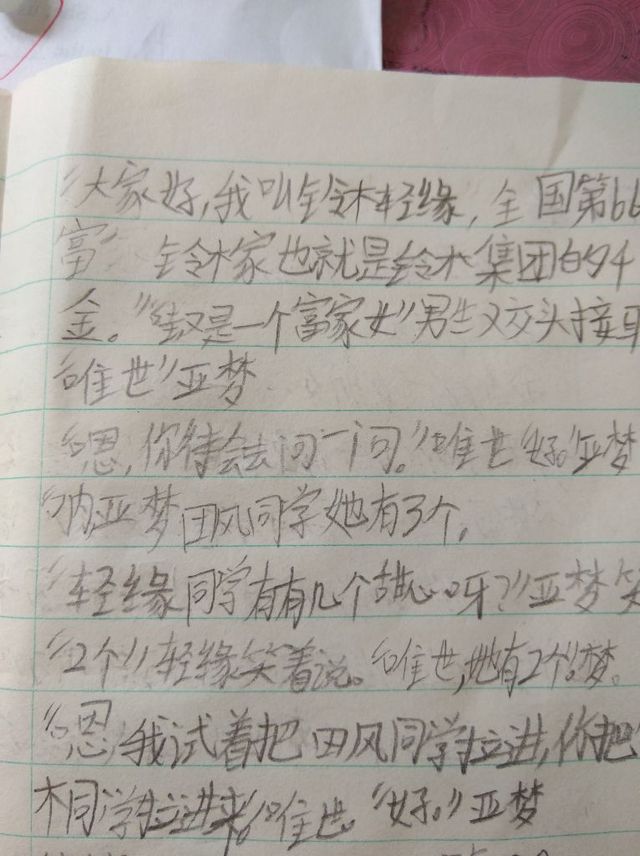 “大家好,我叫铃木轻缘,全国第66
富” 铃木家也就是铃木集团的千
金。”“又是一个富家女”男生又交头接耳
“唯世”亚梦
“恩,你待会去问一问。”唯世“好。”亚梦
“呐,亚梦田风同学她有3个。
“轻缘同学有有几个甜心呀?”亚梦笑
“2个”轻缘笑着说。“唯世,她有2个。”梦。
“恩,我试着把田风同学拉进,你把
木同学拉进来。”唯世。“好。”亚梦